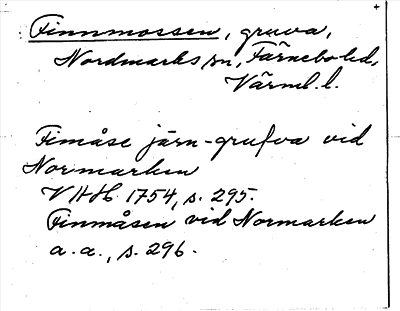 Finnmossen, gruva,
Nordmarks sn, Färnebo hd,
Värml. l.
Fimåse järn-grufva vid
Normarken
VHH 1754, s. 295.
Finmåsen vid Normarken
a. a., s. 296.